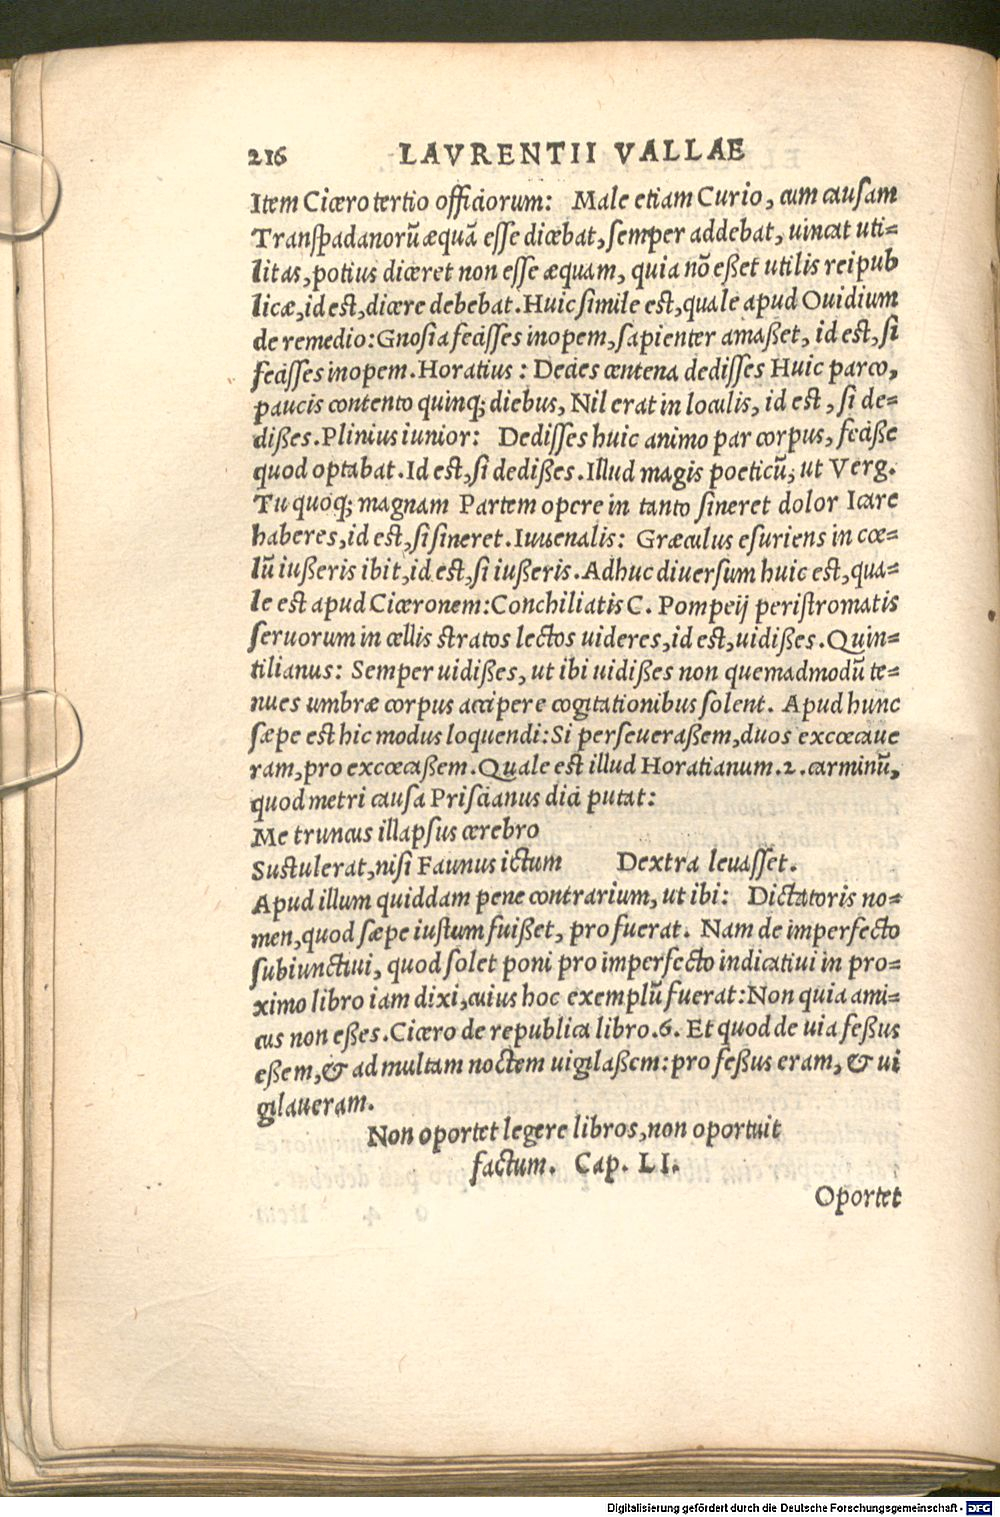 216 LAVRENTII VALLAE
Item Cicero tertio officiorum: Male etiam Curio, cum causam
Transpadanorũ æquã esse dicebat, semper addebat, uincat uti=
litas, potius diceret non esse æquam, quia nõ eßet utilis reipub
licæ, id est, dicere debebat. Huic simile est, quale apud Ouidium
de remedio: Gnosia fecisses inopem, sapienter amaßet, id est, si
fecisses inopem. Horatius: Decies centena dedisses Huic parco,
paucis contento quinq; diebus, Nil erat in loculis, id est, si de=
dißes. Plinius iunior: Dedisses huic animo par corpus, fecißet
quod optabat. Id est, si dedißes. Illud magis poeticũ, ut Verg.
Tu quoq; magnam Partem opere in tanto sineret dolor Icare
haberes, id est, si sineret. Iuuenalis: Græculus esuriens in cœ=
lũ iußeris ibit, id est, si iußeris. Adhuc diuersum huic est, qua=
le est apud Ciceronem: Conchiliatis C. Pompeij peristromatis
seruorum in cellis stratos lectos uideres, id est, uidißes. Quin=
tilianus: Semper uidißes, ut ibi uidißes non quemadmodũ te=
nues umbræ corpus accipere cogitationibus solent. Apud hunc
sæpe est hic modus loquendi: Si perseueraßem, duos excœcaue
ram, pro excœcaßem. Quale est illud Horatianum. 2. carminũ,
quod metri causa Priscianus dici putat:
Me truncus illapsus cerebro
Sustulerat, nisi Faunus ictum Dextra leuasset.
Apud illum quiddam pene contrarium, ut ibi: Dictatoris no=
men, quod sæpe iustum fuißet, pro fuerat. Nam de imperfecto
subiunctiui, quod solet poni pro imperfecto indicatiui in pro=
ximo libro iam dixi, cuius hoc exemplũ fuerat: Non quia ami=
cus non eßes. Cicero de republica libro. 6. Et quod de uia feßus
eßem, & ad multam noctem uigilaßem: pro feßus eram, & ui
gilaueram.
Non oportet legere libros, non oportuit
factum. Cap. LI.
Oportet
Digitalisierung gefördert durch die Deutsche Forschungsgemeinschaft - DFG